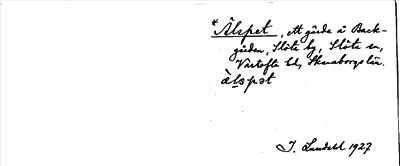 *Älspet, ett gärde å Back-
gården, Slöta by, Slöta sn,
Vartofta hd, Skaraborgs län.
àlspət
I. Lundahl 1927